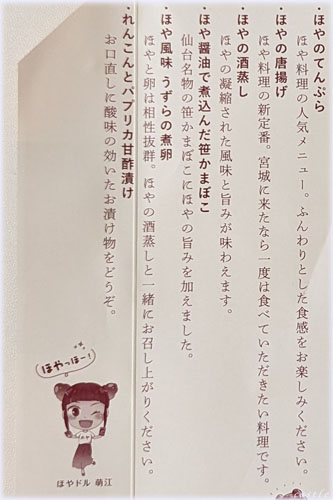 ・ほやのてんぷら
ほや料理の人気メニュー。ふんわりとした食感をお楽しみください。
・ほやの唐揚げ
ほや料理の新定番。宮城に来たなら一度は食べていただきたい料理です。
・ほやの酒蒸し
ほやの凝縮された風味と旨みが味わえます。
・ほや醤油で煮込んだ笹かまぼこ
仙台名物の笹かまぼこにほやの旨みを加えました。
・ほや風味 うずらの煮卵
ほやと卵は相性抜群。ほやの酒蒸しと一緒にお召し上がりください。
・れんこんとパプリカ甘酢漬け
お口直しに酸味の効いたお漬け物をどうぞ。
ほやっほー!
ほやドル 萌江